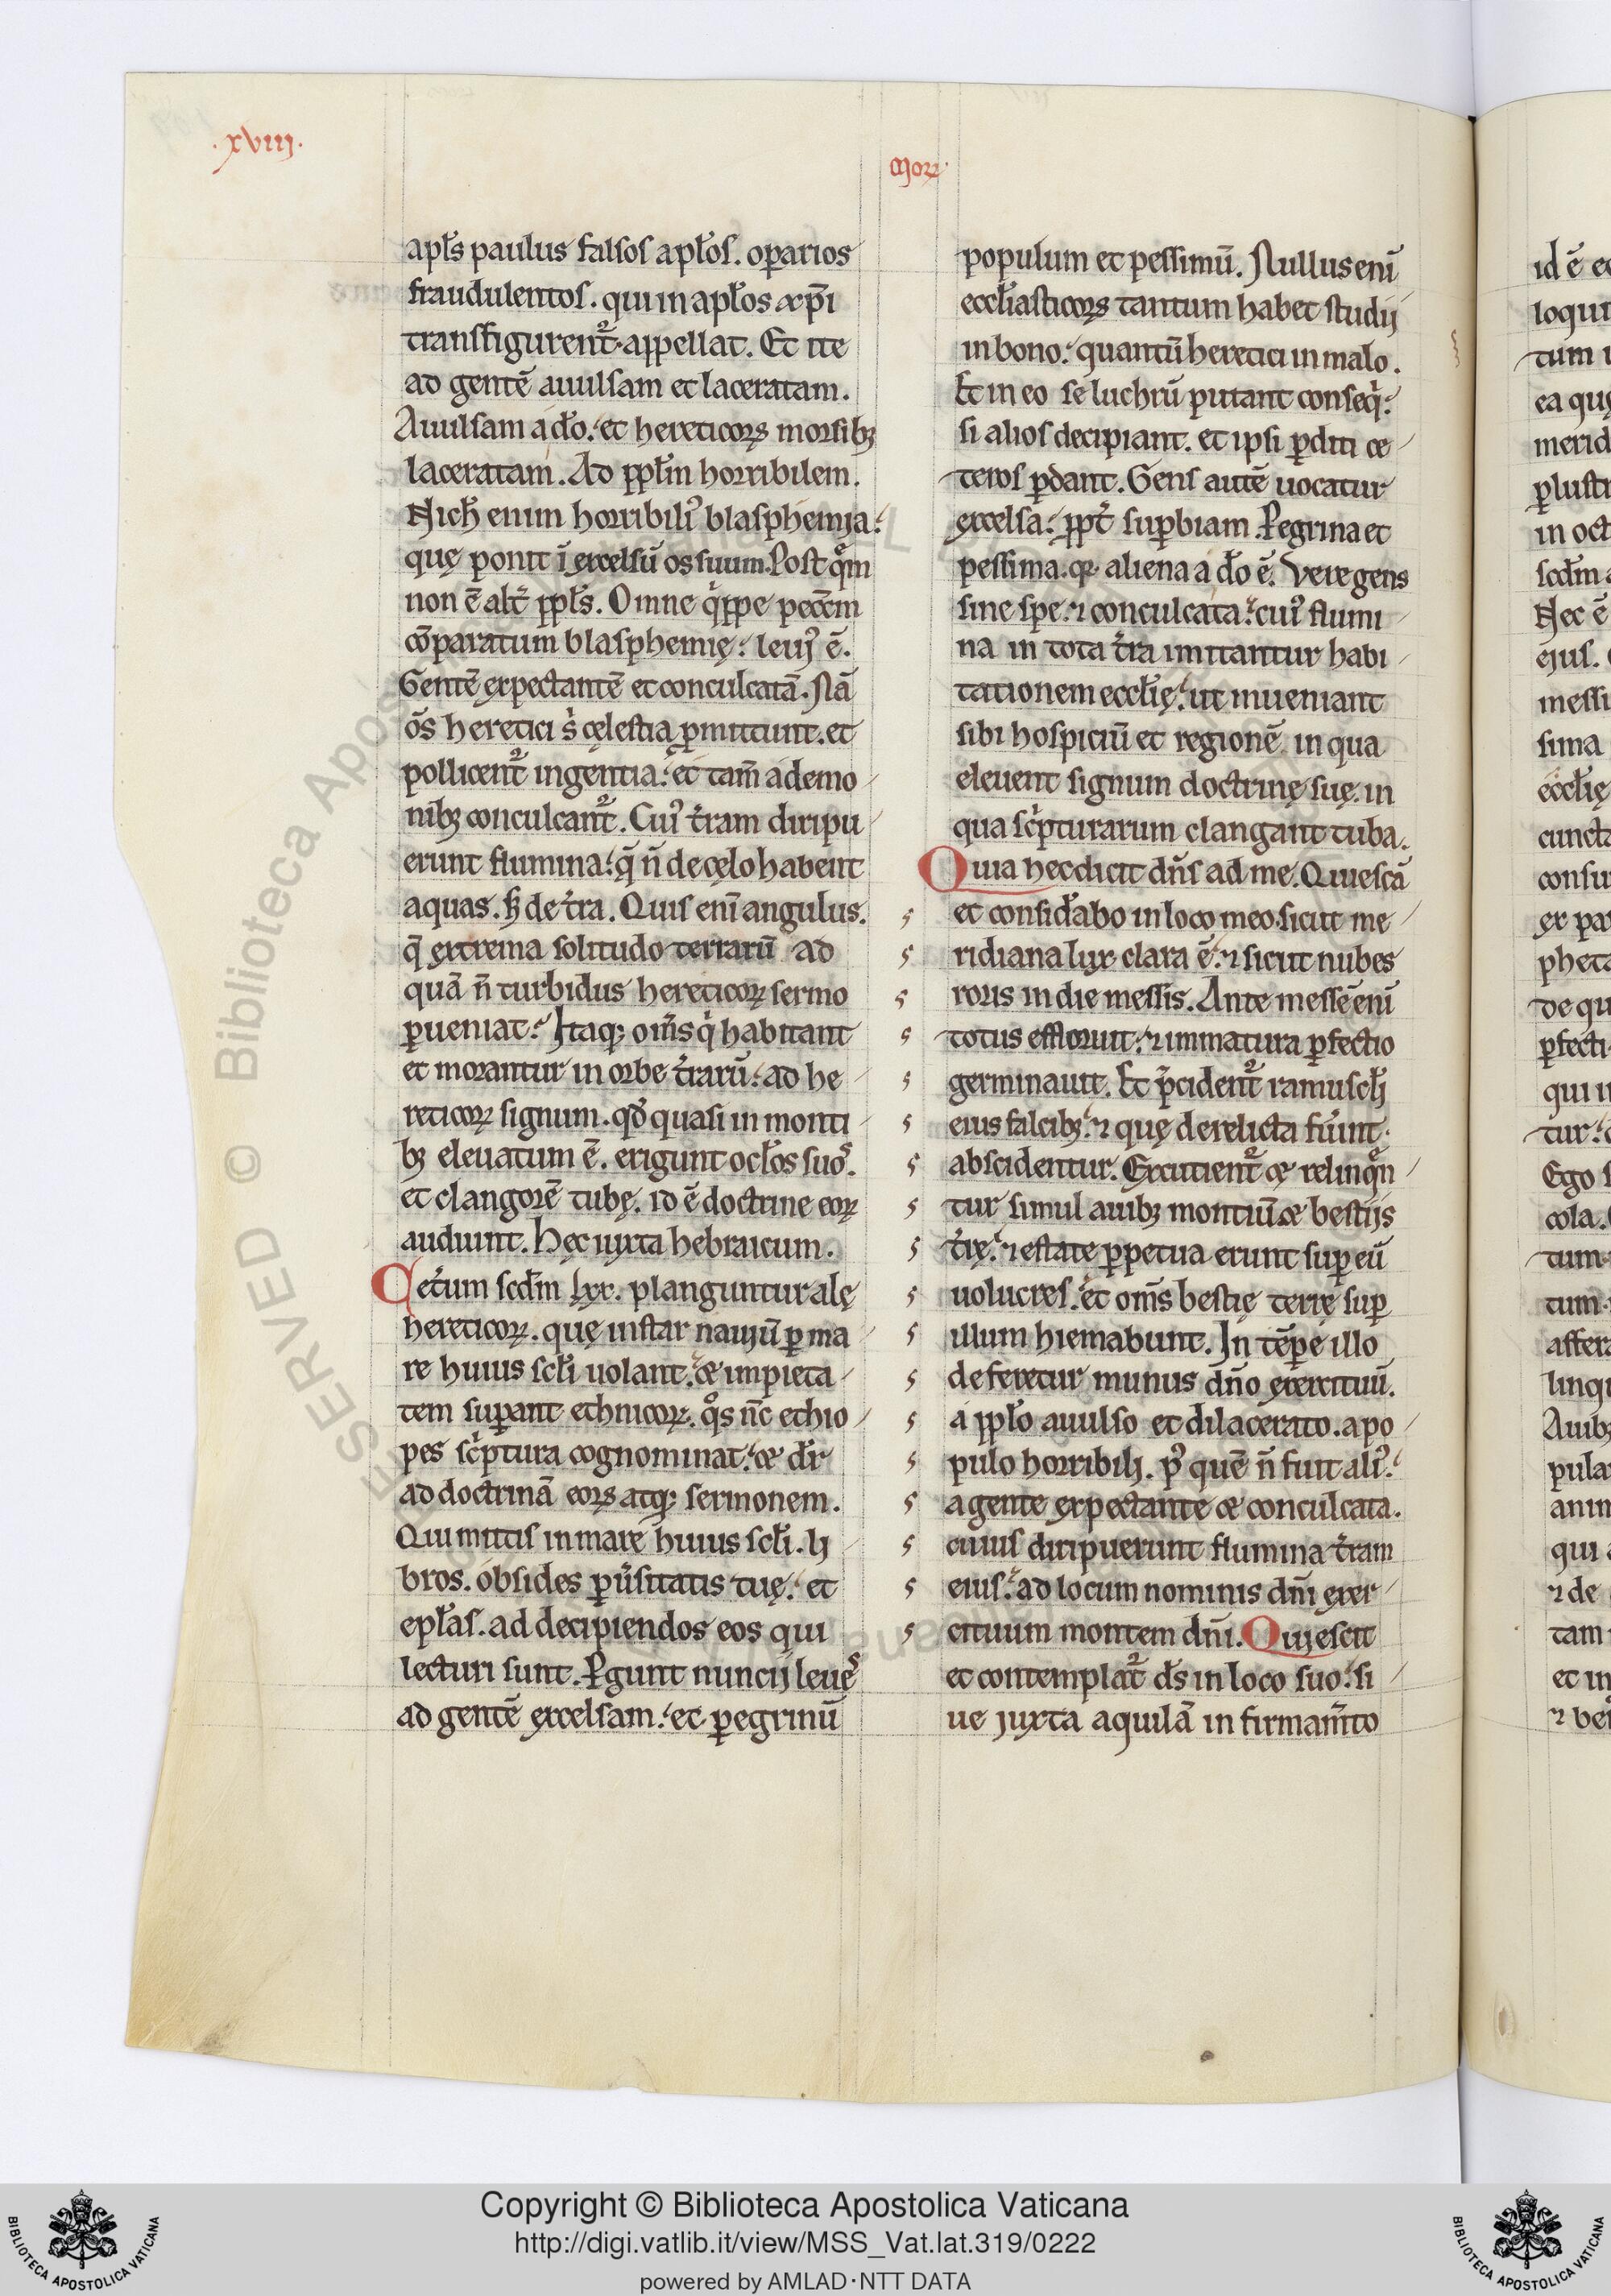 .xviii.
Morꝝ
apłs paulus falsos apłos. oꝑarios
fraudulentos. qui in apłos xp̄i
transfigurent᷑. appellat. Et ite
ad gentē auulsam et laceratam.
Auulsam a do̅. et hereticoꝝ morsibꝫ
laceratam. Ad ppłm horribilem.
Nich̅ enim horribiliꝰ blasphemia.
quę ponit ī excelsū os suum. Post qͣm
non ē alt̄ ppłs. Omne qͥppe pecc̄m
cōparatum blasphemię. leuiꝰ ē.
Gentē expectantē et conculcatā. Nā
o̅s heretici sͥ cęlestia ꝓmittunt. et
pollicent᷑ ingentia. et tam̄ a demo
nibꝫ conculcant᷑. Cuiꝰ t̄ram diripu
erunt flumina. q̄ n̄ de cęlo habent
aquas. sꝫ de t̄ra. Quis eni̅ angulus.
q̄ extrema solitudo terrarū ad
quā n̄ turbidus hereticoꝝ sermo
ꝑueniat. Itaqꝫ om̄s qͥ habitant
et morantur in orbe t̄rarū. ad he
reticoꝝ signum. qd̄ quasi in monti
bꝫ eleuatum ē. erigunt ocłos suos.
et clangorē tubę. id ē doctrine eoꝝ
audiunt. Hęc iuxta hebraicum.
Cet̄um scd̄m lxx. planguntur alę
hereticoꝝ. quę instar nauiū ꝑ ma
re huius scłi uolant. et impieta
tem suꝑant ethnicoꝝ. qͦs nc̄ ethio
pes scͥptura cognominat. et dr̄
ad doctrinā eoꝝ atqꝫ sermonem.
Qui mittis in mare huius scłi. li
bros. obsides ꝑuͥsitatis tuę. et
epłas. ad decipiendos eos qui
lecturi sunt. Ꝑgunt nuncij leues
ad gentē excelsam. et ꝑegrinū
populum et pessimū. Nullus eni̅
eccłiasticoꝝ tantum habet studij
in bono. quantū heretici in malo.
Et in eo se luchrū putant conseqͥ.
si alios decipiant. et ipsi ꝑditi ce
teros ꝑdant. Gens autē uocatur
excelsa. ppt̄ suꝑbiam. Ꝑegrina et
pessima. qꝛ aliena a do̅ ē. Vere gens
sine spe. ⁊ conculcata. cuiꝰ flumi
na in tota t̄ra imitantur habi
tationem eccłię. ut inueniant
sibi hospiciū et regionē in qua
eleuent signum doctrinę suę. in
qua scͥpturarum clangant tuba.
Quia hec dicit dn̄s ad me. Quiescā
et consid̄abo in loco meo. sicut me
ridiana lux clara ē. ⁊ sicut nubes
roris in die messis. Ante messē eni̅
totus effloruit. ⁊ immatura ꝑfectio
germinauit. Et p̄cident᷑ ramuscłi
eius falcibꝫ. ⁊ quę derelicta fu̅int.
abscidentur. Excutient᷑ et relinqͣn
tur simul auibꝫ montiū. et bestijs
t̄rę. ⁊ estate ꝑpetua erunt suꝑ eū
uolucres. et om̄s bestię terrę suꝑ
illum hiemabunt. In tēꝑe illo
deferetur munus dn̄o exercituū.
a ppło auulso et dilacerato. a po
pulo horribili. pꝰ quē n̄ fuit aliꝰ.
a gente expectante et conculcata.
cuius diripuerunt flumina t̄ram
eius. ad locum nominis dn̄i exer
cituum montem dn̄i. Quiescit
et contemplat᷑ ds̄ in loco suo. si
ue iuxta aquilā in firmam̄to
Copyright © Biblioteca Apostolica Vaticana
http://digi.vatlib.it/view/MSS_Vat.lat.319/0222
powered by AMLAD·NTT DATA
BIBLIOTECA APOSTOLICA VATICANA
BIBLIOTECA APOSTOLICA VATICANA